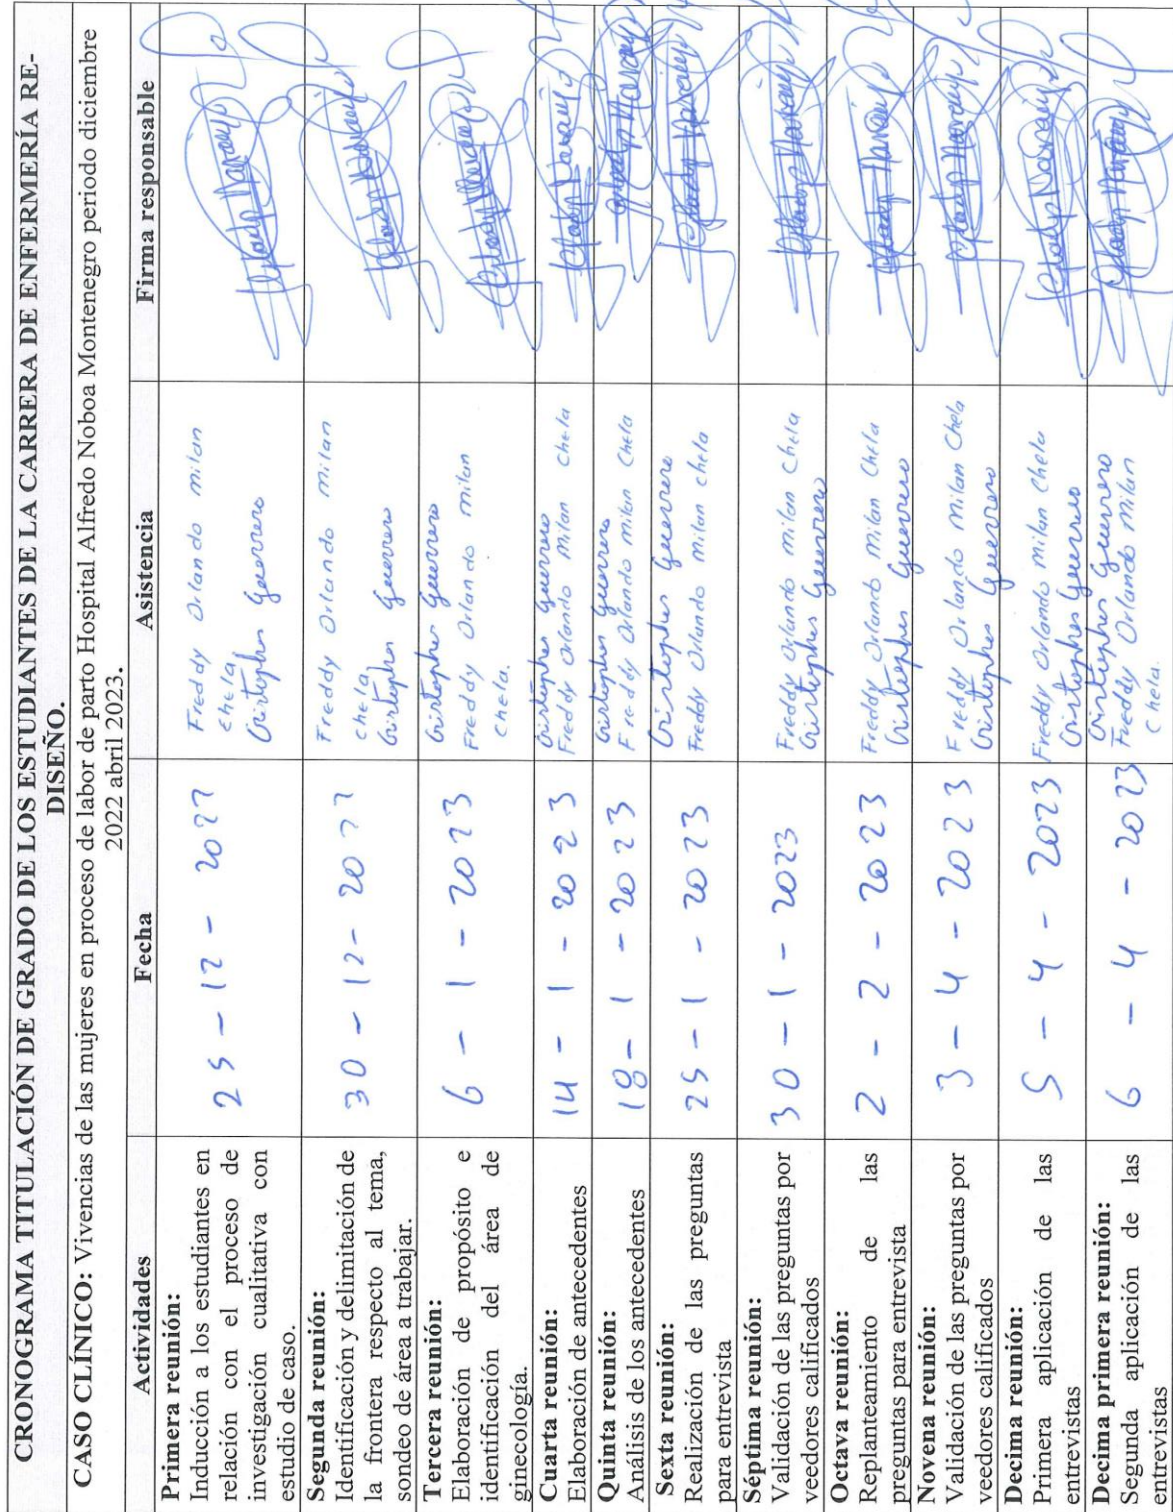 CRONOGRAMA TITULACIÓN DE GRADO DE LOS ESTUDIANTES DE LA CARRERA DE ENFERMERÍA RE-
DISEÑO.
CASO CLÍNICO: Vivencias de las mujeres en proceso de labor de parto Hospital Alfredo Noboa Montenegro periodo diciembre
2022 abril 2023.
Actividades Fecha Asistencia Firma responsable
Primera reunión:
Inducción a los estudiantes en
relación con el proceso de
investigación cualitativa con
estudio de caso.
25 - 12 - 2022
Freddy Orlando milan
chela
Cristopher Guerrero
Gladys Naranjo
Segunda reunión:
Identificación y delimitación de
la frontera respecto al tema,
sondeo de área a trabajar.
30 - 12 - 2022
Freddy Orlando milan
chela
Cristopher Guerrero
Gladys Naranjo
Tercera reunión:
Elaboración de propósito e
identificación del área de
ginecología.
6 - 1 - 2023
Cristopher Guerrero
Freddy Orlando milan
chela.
Gladys Naranjo
Cuarta reunión:
Elaboración de antecedentes
14 - 1 - 2023
Cristopher Guerrero
Freddy Orlando milan chela
Gladys Naranjo
Quinta reunión:
Análisis de los antecedentes
18 - 1 - 2023
Cristopher Guerrero
Freddy Orlando milan Chela
Gladys Naranjo
Sexta reunión:
Realización de las preguntas
para entrevista
25 - 1 - 2023
Cristopher Guerrero
Freddy Orlando milan chela
Gladys Naranjo
Séptima reunión:
Validación de las preguntas por
veedores calificados
30 - 1 - 2023
Freddy Orlando milan Chela
Cristopher Guerrero
Gladys Naranjo
Octava reunión:
Replanteamiento de las
preguntas para entrevista
2 - 2 - 2023
Freddy Orlando milan Chela
Cristopher Guerrero
Gladys Naranjo
Novena reunión:
Validación de las preguntas por
veedores calificados
3 - 4 - 2023
Freddy Orlando milan Chela
Cristopher Guerrero
Gladys Naranjo
Decima reunión:
Primera aplicación de las
entrevistas
5 - 4 - 2023
Freddy Orlando milan Chela
Cristopher Guerrero
Gladys Naranjo
Decima primera reunión:
Segunda aplicación de las
entrevistas
6 - 4 - 2023
Cristopher Guerrero
Freddy Orlando milan
Chela.
Gladys Naranjo